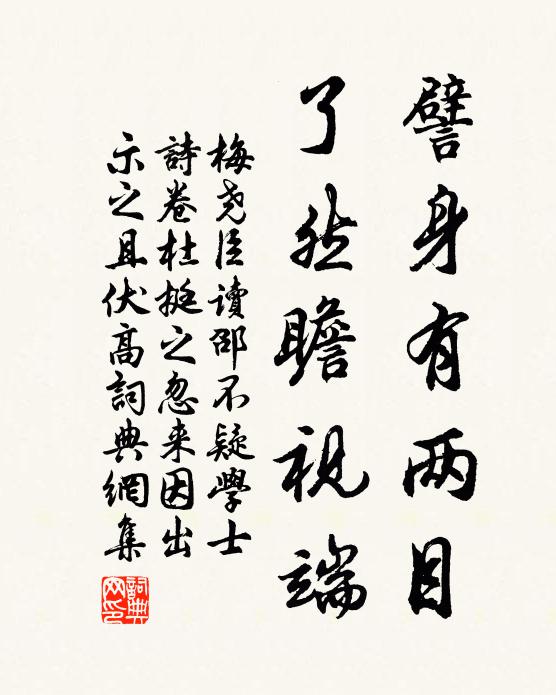 譬身有两目
了然瞻视端
梅尧臣讀邵不疑學士
詩卷杜挺之忽来因出
示之且伏高詞典網集
詞典网印